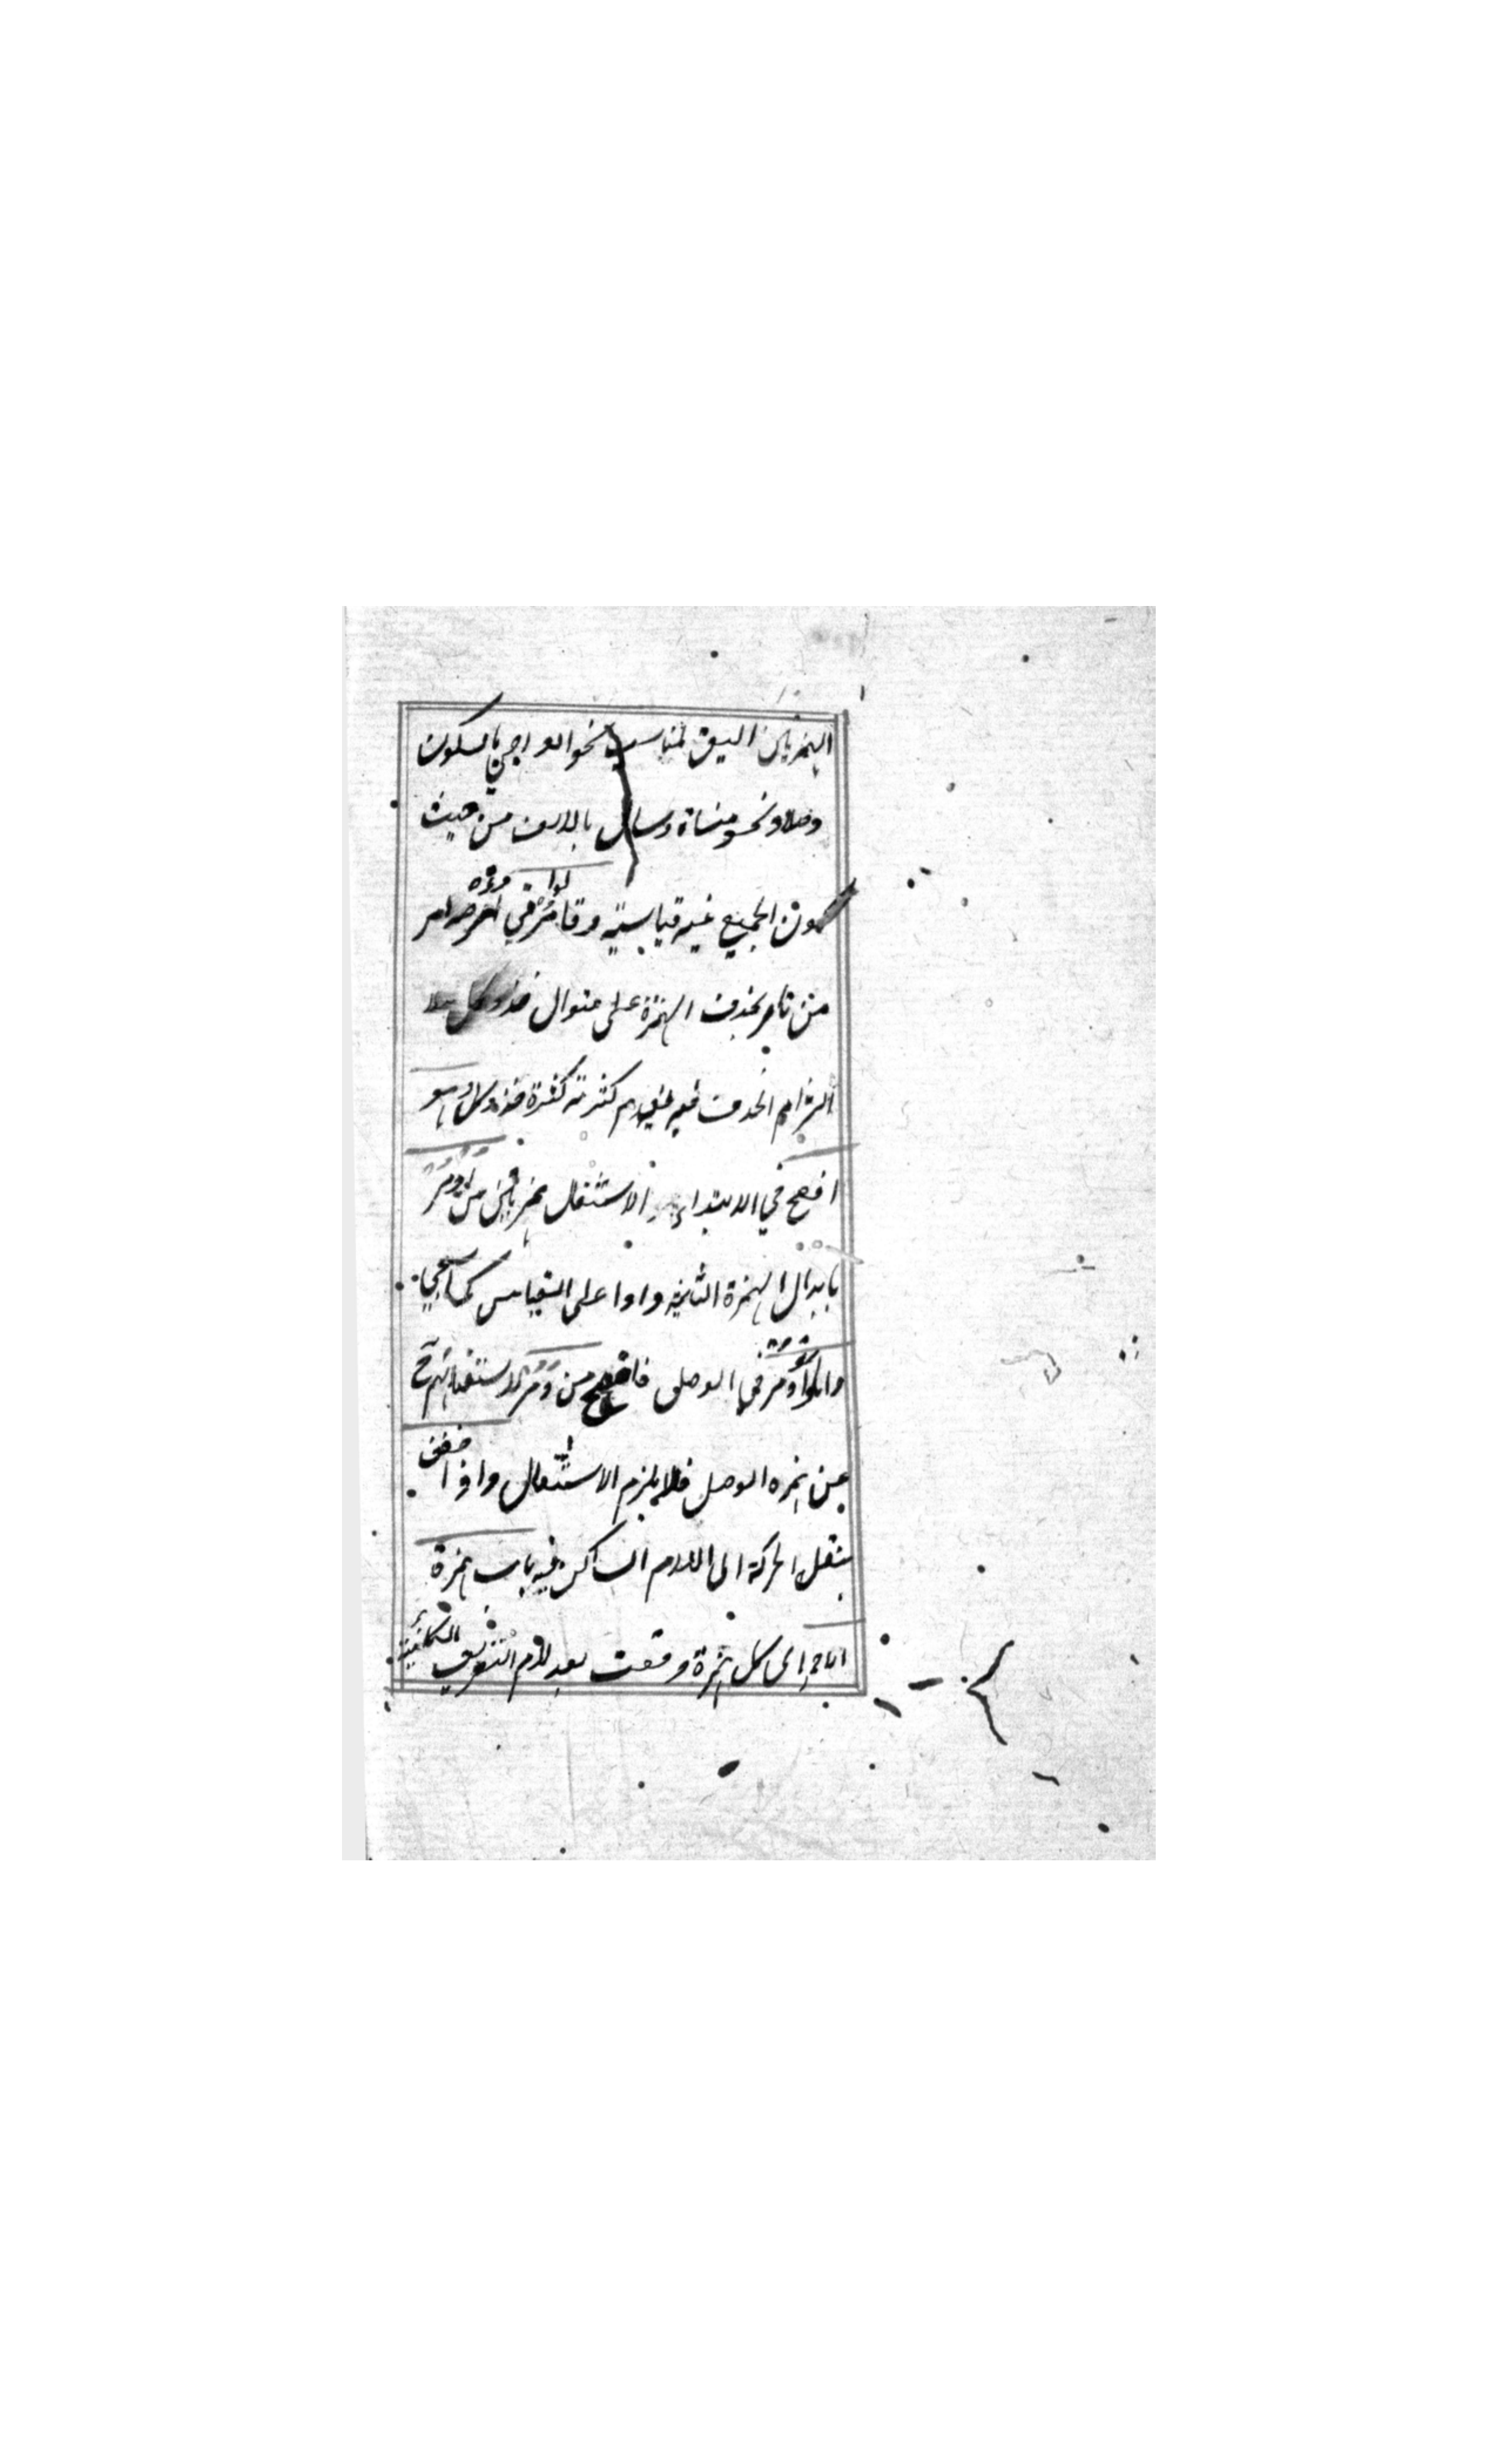 الهمزتان اليق لمناسب نحو الواجي بالسكون
وصلا ونحو منساة وسال بالالف من حيث
كون الجميع غير قياسية وقالوا مُرْ في اؤمر امر
من تامر بحذف الهمزة على منوال خذ وكل بلا
التزام الحذف فيه لعدم كثرته كثرة خذ وكل
افصح في الابتداء الاستثقال همزتين من اؤمر
بابدال الهمزة الثانية واوا على القياس كما سيجيء
واما وأمر في الوصل فافصح من ومر لاستغنائهم ح
عن همزه الوصل فلا يلزم الاستثقال واذا خفف
بنقل الحركة الى اللام الساكن فيه باب همزة
الاحمر اى كل همزة وقعت بعد لام التعريف الساكنة